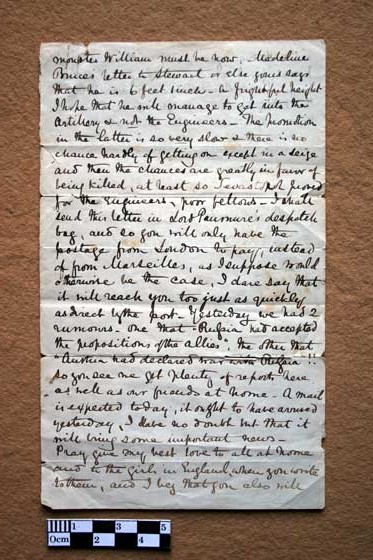 monster William must be now, Madeline
Bruces letter to Stewart or else yours says
that he is 6 feet 1 inch - A frightful height
I hope that he will manage to get into the
Artillery & not the Engineers - The promotion
in the latter is so very slow & there is no
chance hardly of getting on except in a seige
and then the chances are greatly in favor of
being killed, at least so I
for the Engineers, poor fellows - I shall
send this letter in Lord Panmure's despatch
bag, and so you will only have the
postage from London to pay, instead
of from Marseilles, as I suppose would
otherwise be the case, I dare say that
it will reach you too just as quickly
as direct by the post - Yesterday we had 2
rumours - one that "Russia had accepted
the propositions of the allies", the other that
"Austria had declared war with Russia"!!
so you see we get plenty of reports here
as well as our friends at home - A mail
is expected today, it ought to have arrived
yesterday, I have no doubt but that it
will bring some important news -
Pray give my best love to all at home
and to the girls in England, when you write
to them, and I beg that you also will
1 3 5
0cm 2 4